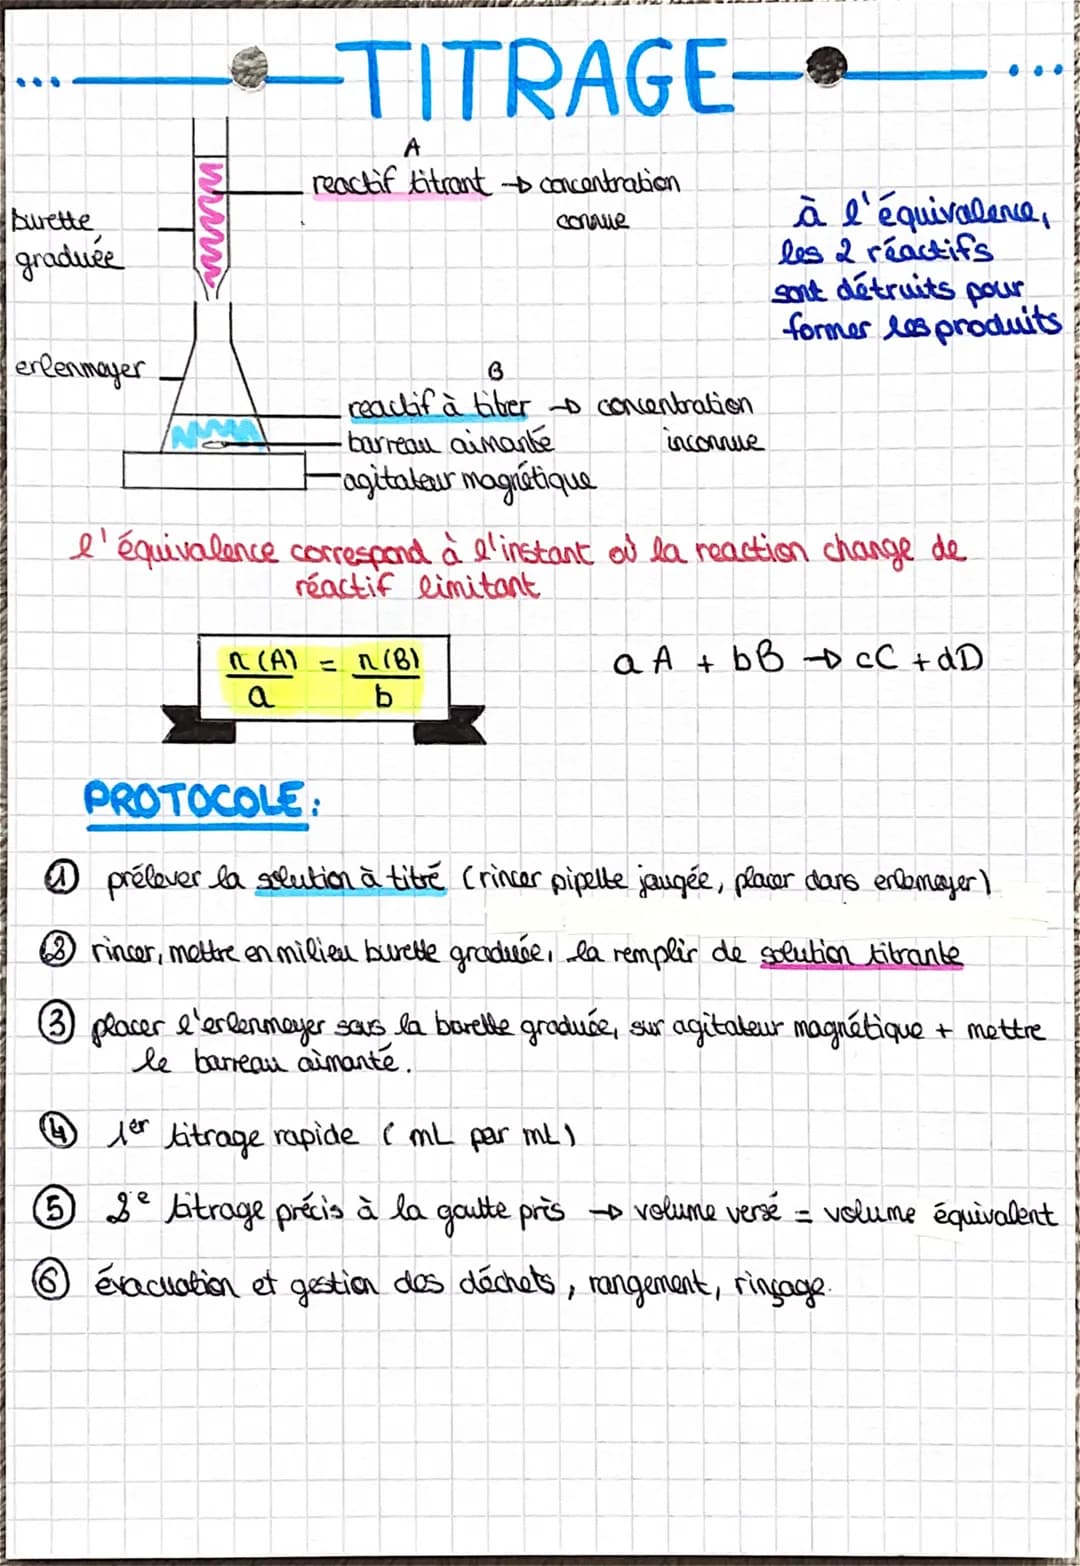 TITRAGE
A
reactif titrant → concentration
connue
burette
graduée
à l'équivalence,
les 2 réactifs
sont détruits pour
former les produits
erlenmayer
B
reactif à titrer → concentration
barreau aimanté
inconnue
agitateur magnétique
l'équivalence correspond à l'instant où la reaction change de
réactif limitant
n(A)/a = n(B)/b
aA + bB → cC + dD
PROTOCOLE:
① prélever la solution à titré (rincer pipette jaugée, placer dans erlemayer)
② rincer, mettre en milieu burette graduée, la remplir de solution titrante
③ placer l'erlenmayer sous la burette graduée, sur agitateur magnétique + mettre
le barreau aimanté.
④ 1er titrage rapide (mL par mL)
⑤ 2e titrage précis à la goutte près → volume versé = volume équivalent
⑥ évacuation et gestion des déchets, rangement, rinçage.